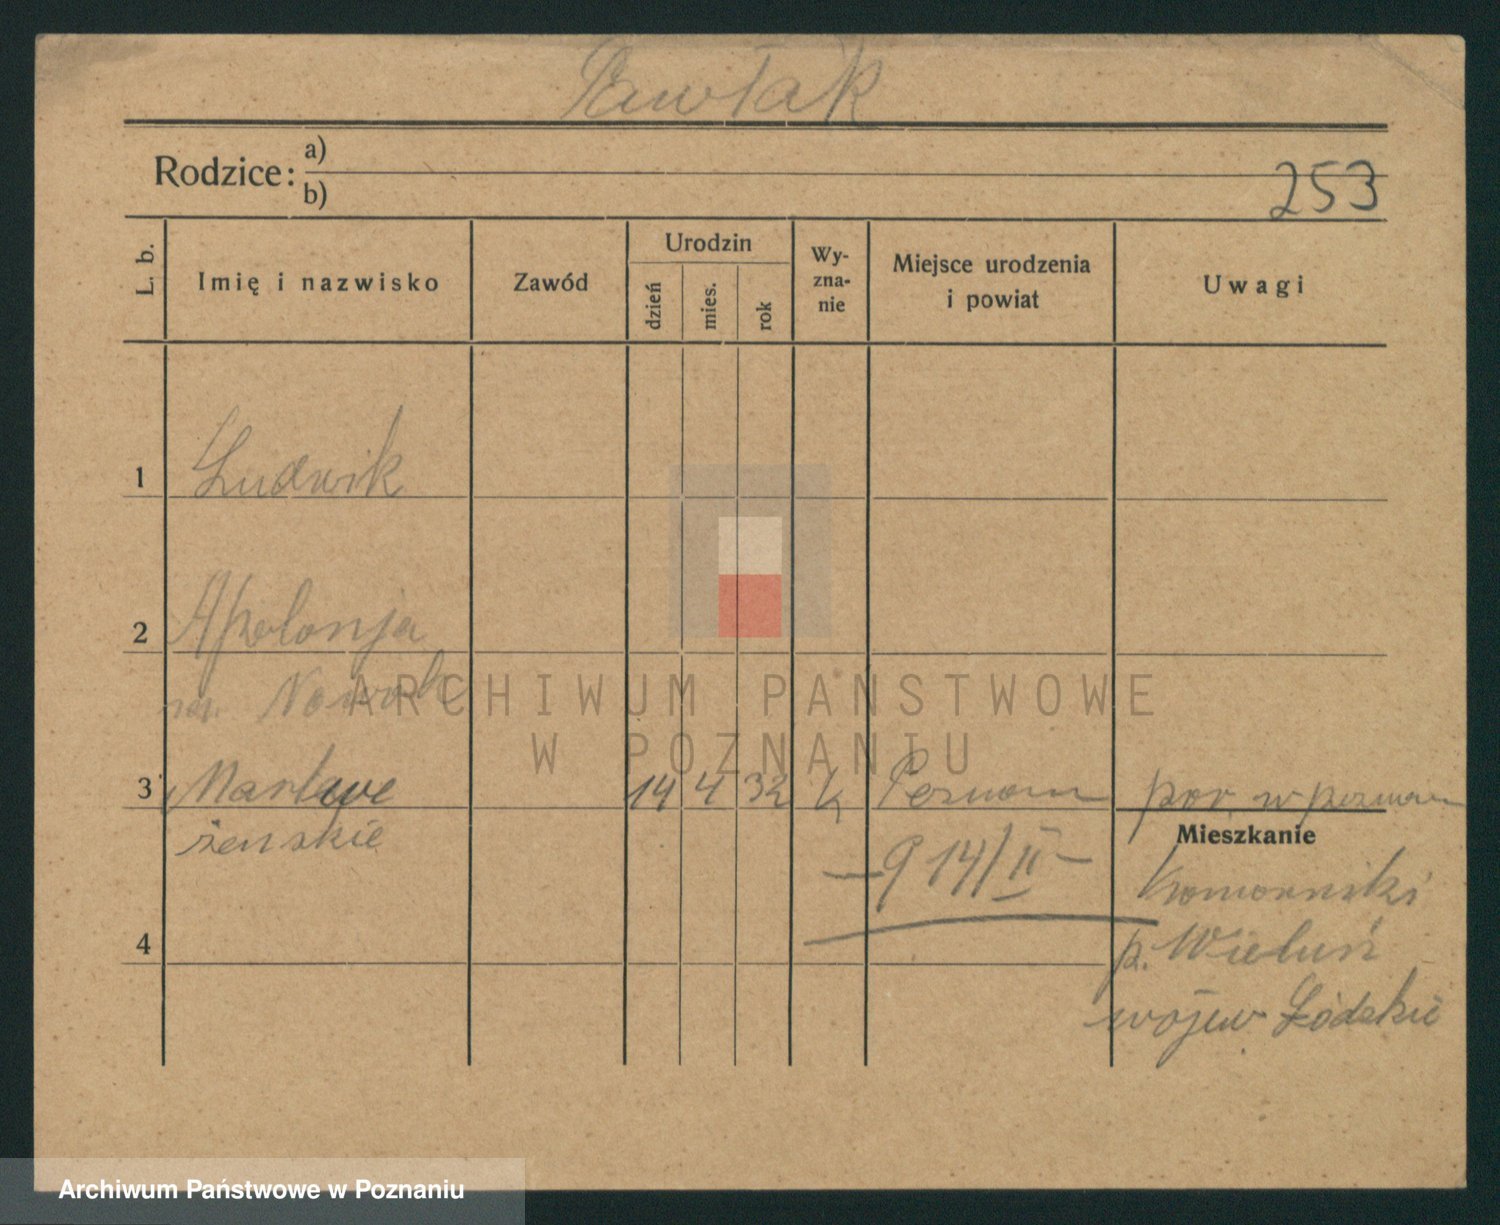 Pawlak
Rodzice: a)
b)
253
L. b.
Imię i nazwisko
Zawód
Urodzin
dzień
mies.
rok
Wy-
zna-
nie
Miejsce urodzenia
i powiat
Uwagi
1 Ludwik
2 Apolonja
Nowak
3 Martwe 14 4 32 k Poznan por. w poznan
żenskie
Mieszkanie
914/II
4
p. Wieluń
wojew Łódzkie
ARCHIWUM PAŃSTWOWE
W POZNANIU
Archiwum Państwowe w Poznaniu